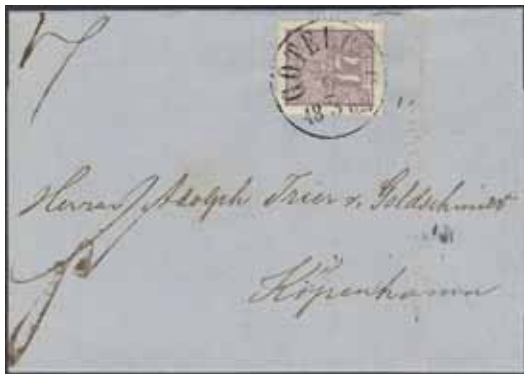 GOTEI
17
18
Herrar Adolph Trier v. Goldschmidt
Köpenhamn